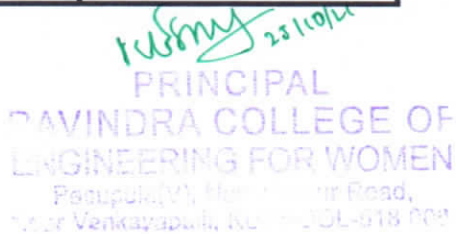 25/10/21
PRINCIPAL
RAVINDRA COLLEGE OF
ENGINEERING FOR WOMEN
Pasupula(V), Road,
Venkayapalli, -518